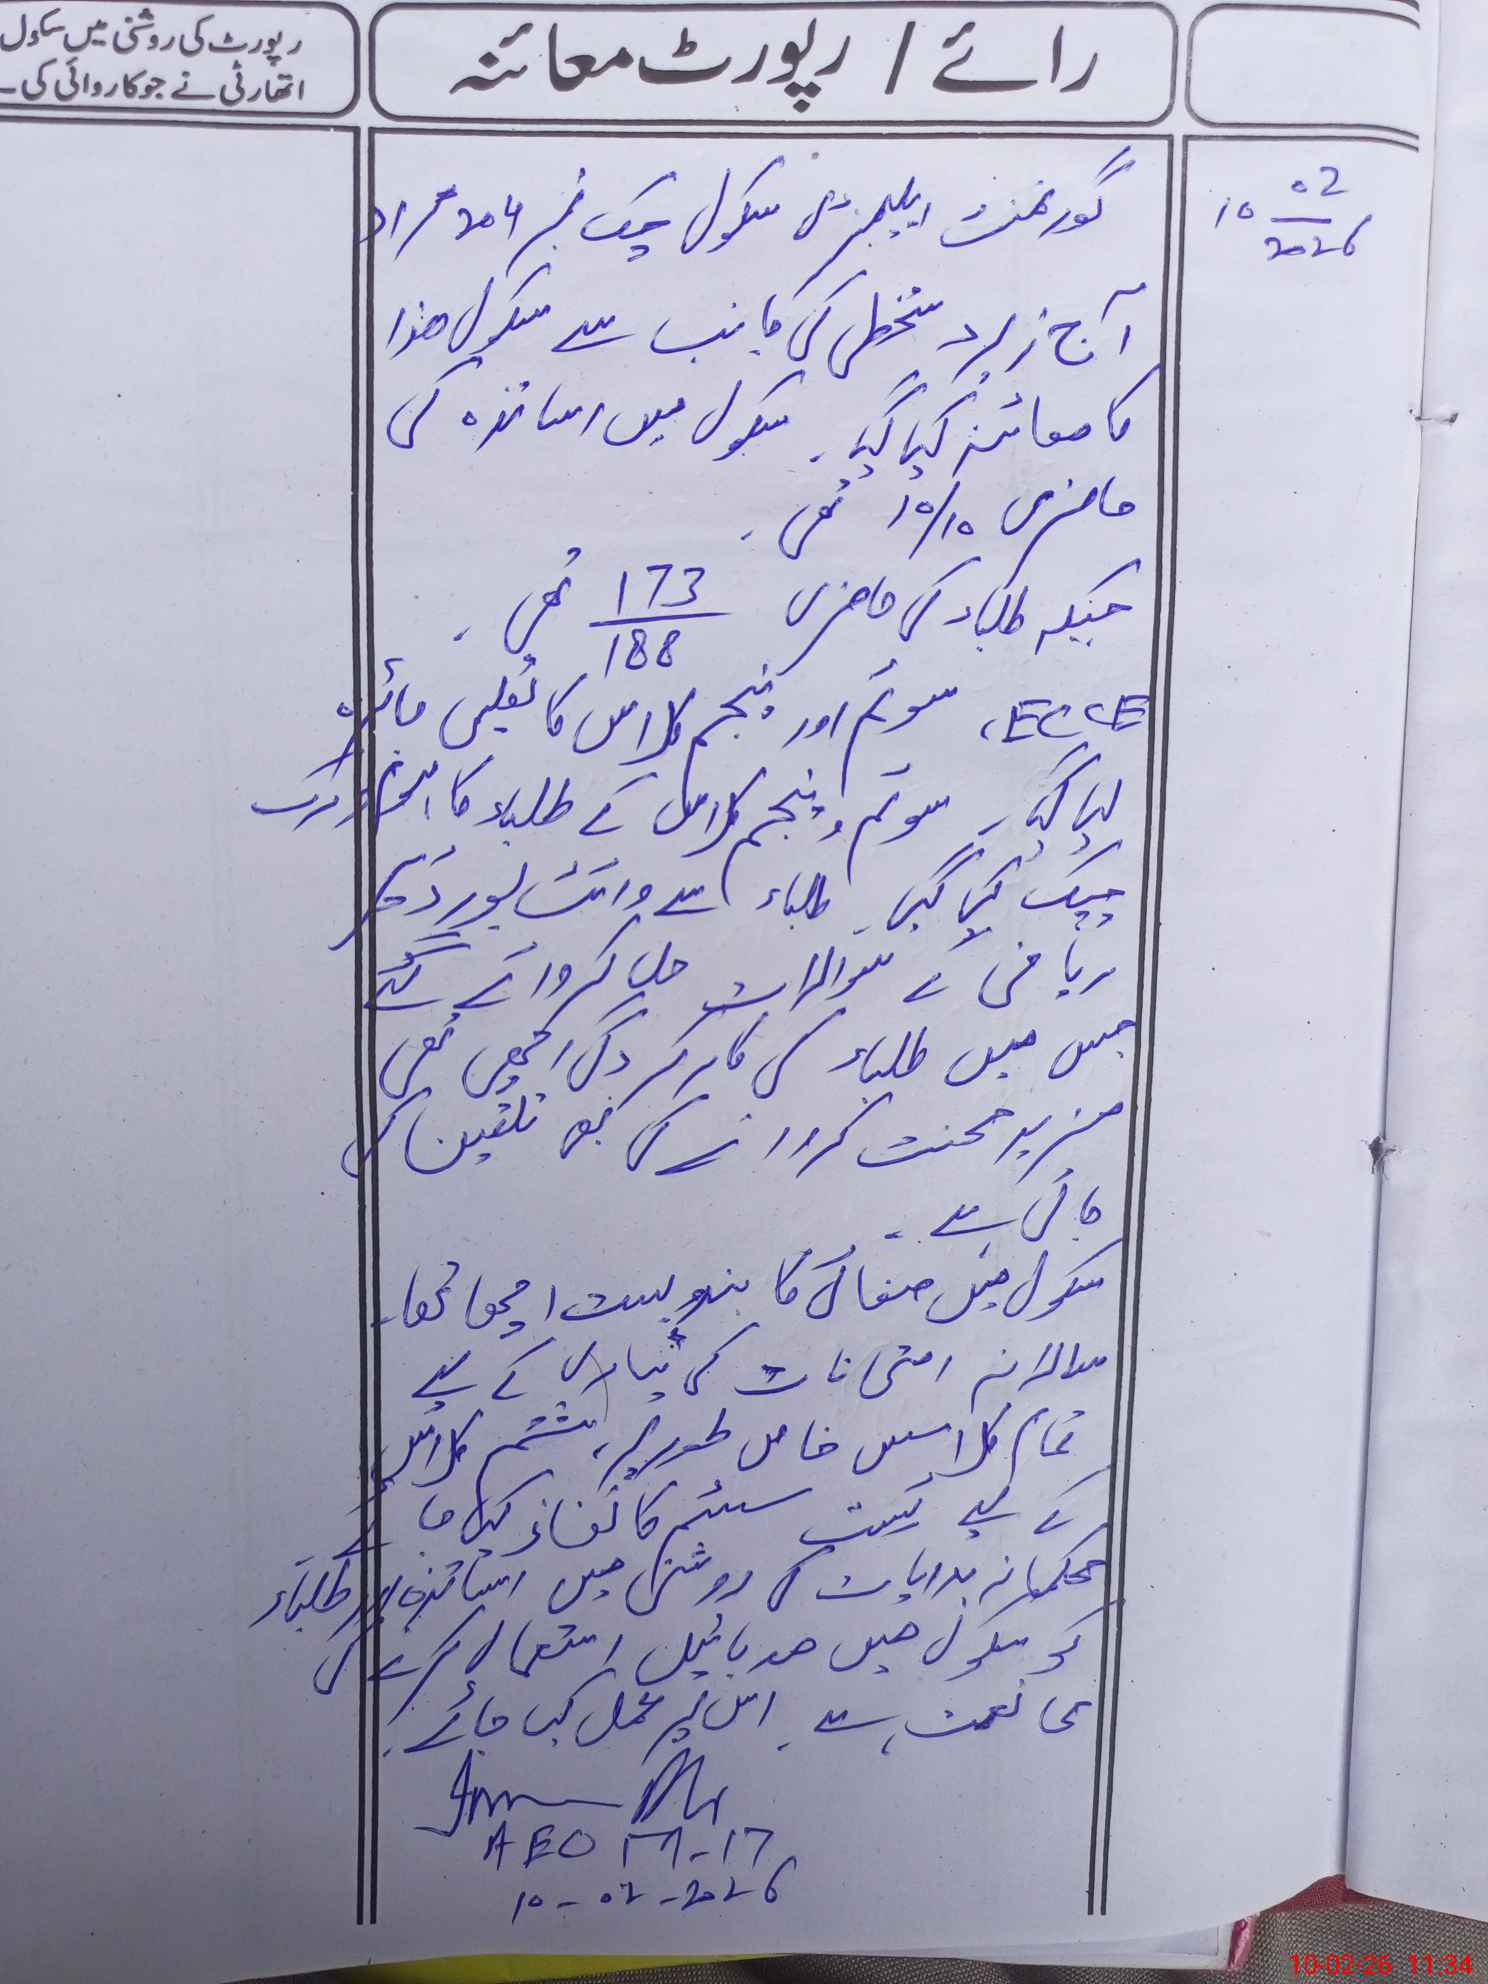 رپورٹ کی روشنی میں سکول
اتھارٹی نے جو کاروائی کی۔
رائے / رپورٹ معائنہ
10 02
2026
گورنمنٹ ایلیمنٹری سکول چک نمبر 204 مراد
آج زیر دستخطی کی جانب سے سکول ھذا
کا معائنہ کیا گیا۔ سکول میں اساتذہ کی
حاضری 10/10 تھی۔
جبکہ طلباء کی حاضری 173/188 تھی۔
ECCE، سوئم اور پنجم کلاس کا تعلیمی جائزہ
لیا گیا۔ سوئم و پنجم کلاس کے طلباء کا ہوم ورک
چیک کیا گیا۔ طلباء سے وائٹ بورڈ پر
ریاضی کے سوالات حل کروائے گئے
جس میں طلباء کی کارکردگی اچھی تھی
مزید محنت کروانے کی بھی تلقین کی
جاتی ہے۔
سکول میں صفائی کا بندوبست اچھا تھا۔
سالانہ امتحانات کی تیاری کے لیے
تمام کلاسیں خاص طور پر، ہشتم کلاس
کے لیے ٹیسٹ سسٹم کا نفاذ کیا جائے
محکمانہ ہدایات کی روشنی میں اساتذہ اور طلباء
کو سکول میں موبائیل استعمال کرنے کی
ممانعت ہے۔ اس پر عمل کیا جائے۔
AEO M-17
10-02-2026
10-02-26 11:34